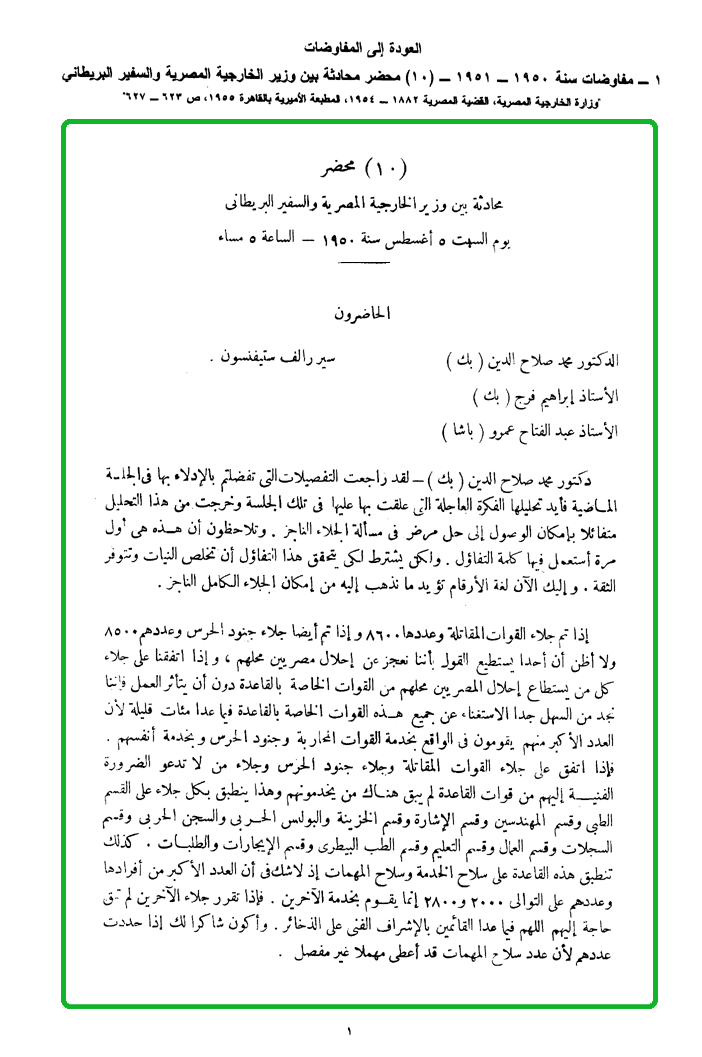 العودة إلى المفاوضات
١ ــ مفاوضات سنة ١٩٥٠ ــ ١٩٥١ ــ (١٠) محضر محادثة بين وزير الخارجية المصرية والسفير البريطاني
"وزارة الخارجية المصرية، القضية المصرية ١٨٨٢ ــ ١٩٥٤، المطبعة الأميرية بالقاهرة ١٩٥٥، ص ٦٢٣ ــ ٦٢٧"
(١٠) محضر
محادثة بين وزير الخارجية المصرية والسفير البريطانى
يوم السبت ٥ أغسطس سنة ١٩٥٠ – الساعة ٥ مساء
الحاضرون
الدكتور محمد صلاح الدين ( بك ) سير رالف ستيفنسون .
الأستاذ إبراهيم فرج ( بك )
الأستاذ عبد الفتاح عمرو ( باشا )
دكتور محمد صلاح الدين ( بك ) – لقد راجعت التفصيلات التى تفضلتم بالإدلاء بها فى الجلسة
الماضية فأيد تحليلها الفكرة العاجلة التى علقت بها عليها فى تلك الجلسة وخرجت من هذا التحليل
متفائلا بإمكان الوصول إلى حل مرض فى مسألة الجلاء الناجز . وتلاحظون أن هذه هى أول
مرة أستعمل فيها كلمة التفاؤل . ولكن يشترط لكى يتحقق هذا التفاؤل أن تخلص النيات وتتوفر
الثقة . وإليك الآن لغة الأرقام تؤيد ما نذهب إليه من إمكان الجلاء الكامل الناجز .
إذا تم جلاء القوات المقاتلة وعددها ٨٦٠٠ وإذا تم أيضا جلاء جنود الحرس وعددهم ٨٥٠٠
ولا أظن أن أحدا يستطيع القول بأننا نعجز عن إحلال مصريين محلهم ، وإذا اتفقنا على جلاء
كل من يستطاع إحلال المصريين محلهم من القوات الخاصة بالقاعدة دون أن يتأثر العمل فإننا
نجد من السهل جدا الاستغناء عن جميع هذه القوات الخاصة بالقاعدة فيما عدا مئات قليلة لأن
العدد الأكبر منهم يقومون فى الواقع بخدمة القوات المحاربة وجنود الحرس وبخدمة أنفسهم .
فإذا اتفق على جلاء القوات المقاتلة وجلاء جنود الحرس وجلاء من لا تدعو الضرورة
الفنية إليهم من قوات القاعدة لم يبق هناك من يخدمونهم وهذا ينطبق بكل جلاء على القسم
الطبى وقسم المهندسين وقسم الإشارة وقسم الخزينة والبوليس الحربى والسجن الحربى وقسم
السجلات وقسم العمال وقسم التعليم وقسم الطب البيطرى وقسم الإيجارات والطلبات . كذلك
تنطبق هذه القاعدة على سلاح الخدمة وسلاح المهمات إذ لا شك فى أن العدد الأكبر من أفرادها
وعددهم على التوالى ٢٠٠٠ و ٢٨٠٠ إنما يقوم بخدمة الآخرين . فإذا تقرر جلاء الآخرين لم تبق
حاجة إليهم اللهم فيما عدا القائمين بالإشراف الفنى على الذخائر . وأكون شاكرا لك إذا حددت
عددهم لأن عدد سلاح المهمات قد أعطى مهملا غير مفصل .
١